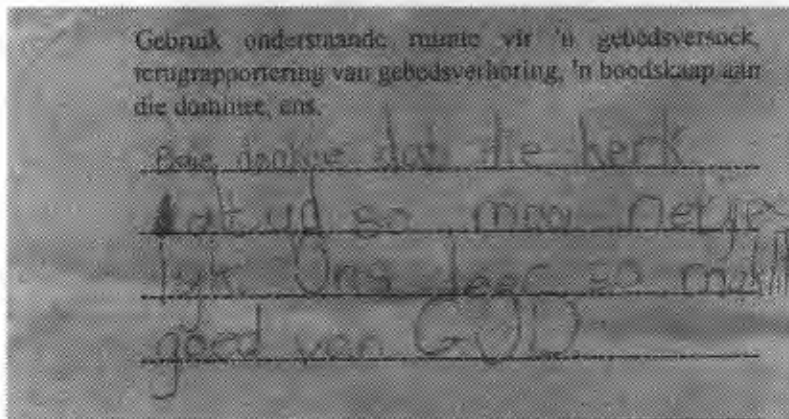 Gebruik onderstaande ruimte vir 'n gebedsversoek,
terugrapportering van gebedsverhoring, 'n boodskap aan
die dominee, ens.
Baie dankie dat die kerk
altyd so mooi netjies
lyk. Ons leer so maklik
goed van GOD